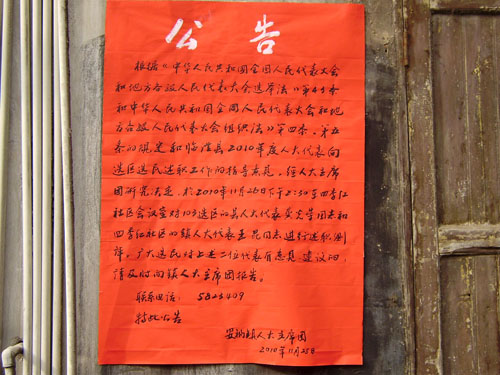 公告
根据《中华人民共和国全国人民代表大会
和地方各级人民代表大会选举法》第45条
和中华人民共和国全国人民代表大会和地
方各级人民代表大会组织法》第四条、第五
条的规定和临 县2010年度人大代表向
选区选民述职工作的指导意见，经人大主席
团研究决定，于2010年11月26日下午2:30在四季红
社区会议室对103选区的县人大代表 同志和
四季红社区的镇人大代表王昆同志进行述职测
评，广大选民对上述二位代表有意见、建议的
请及时向镇人大主席团报告。
联系电话： 5823409
特此公告
镇人大主席团
2010年11月25日